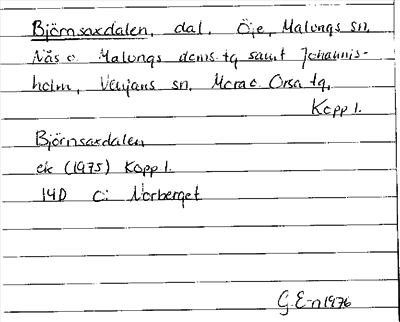 Björnsaxdalen, dal. Öje, Malungs sn,
Näs o. Malungs doms. tg samt Johannis-
holm, Venjans sn, Mora o. Orsa tg,
Kopp l.
Björnsaxdalen
ek (1975) Kopp l.
14D c: Norberget
G. E-n 1976